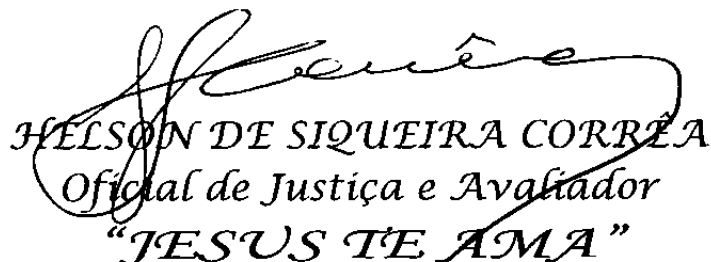 HELSON DE SIQUEIRA CORRÊA
Oficial de Justiça e Avaliador
“JESUS TE AMA”